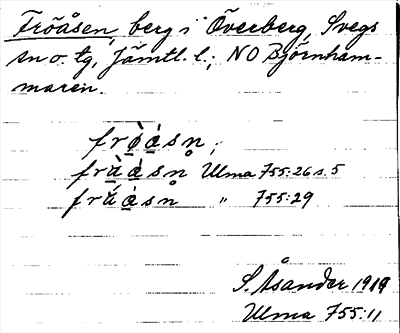 Fröåsen, berg i Överberg, Svegs
sn o. tg, Jämtl. l.; NO Björnham-
maren.
frø̀ásn̥,
frʉ̀ásn̥ Ulma 755:26 s. 5
frʉ́ásn̥ " 755:29
S. Åsander 1919
Ulma 755:11